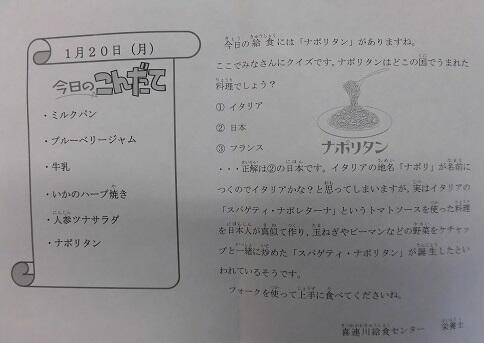 1月20日(月)
今日のこんだて
・ミルクパン
・ブルーベリージャム
・牛乳
・いかのハーブ焼き
・人参ツナサラダ
・ナポリタン
今日の給食には「ナポリタン」がありますね。
ここでみなさんにクイズです。ナポリタンはどこの国でうまれた
料理でしょう?
① イタリア
② 日本
③ フランス
ナポリタン
・・・正解は②の日本です。イタリアの地名「ナポリ」が名前に
つくのでイタリアかな?と思ってしまいますが、実はイタリアの
「スパゲティ・ナポレターナ」というトマトソースを使った料理
を日本人が真似て作り、玉ねぎやピーマンなどの野菜をケチャッ
プと一緒に炒めた「スパゲティ・ナポリタン」が誕生したとい
われているそうです。
フォークを使って上手に食べてくださいね。
喜連川給食センター 栄養士